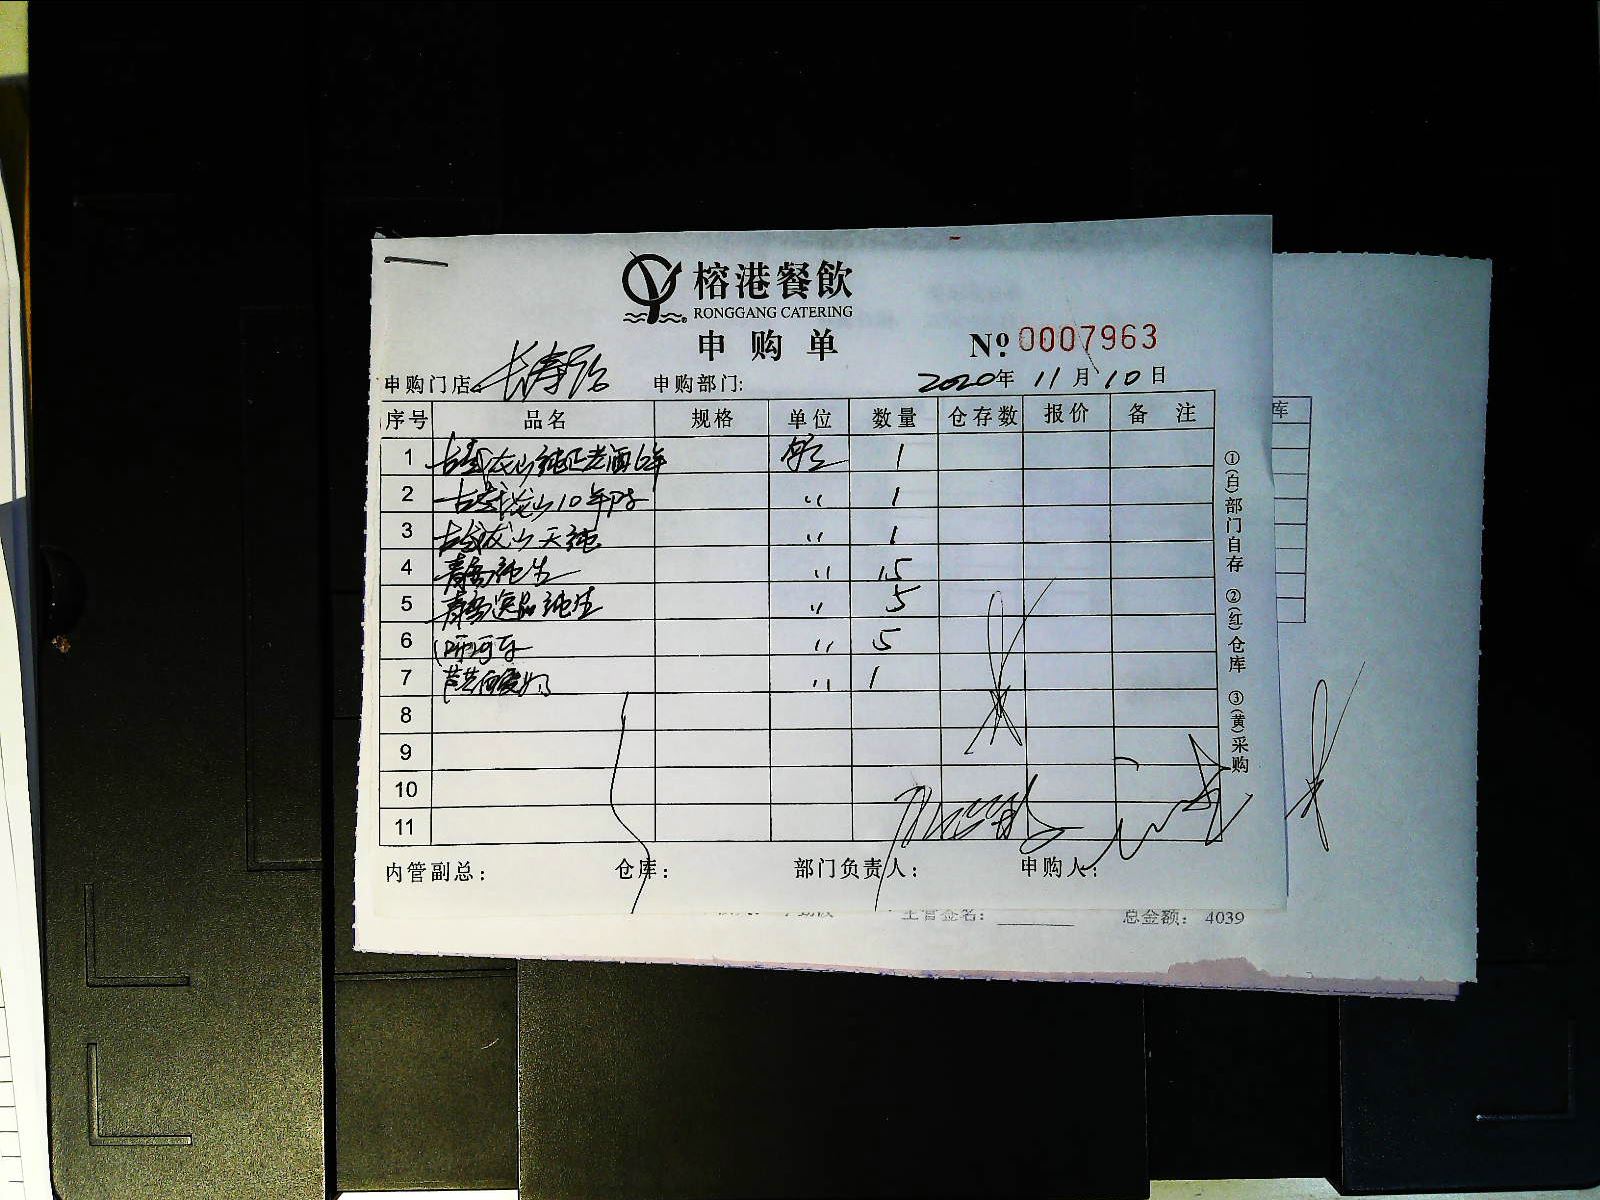 榕港餐飲
RONGGANG CATERING
申购单
Nº 0007963
申购门店: 长寿路 申购部门: 2020年11月10日
序号 品名 规格 单位 数量 仓存数 报价 备注
1 古越龙山纯正老酒6年 箱 1
2 古越龙山10年陈 〃 1
3 古越龙山天纯 〃 1
4 青岛纯生 〃 15
5 青岛逸品纯生 〃 5
6 〃 5
7 〃 1
8
9
10
11
内管副总: 仓库: 部门负责人: 申购人:
①(白)部门自存 ②(红)仓库 ③(黄)采购
库
主管签名: 总金额: 4039